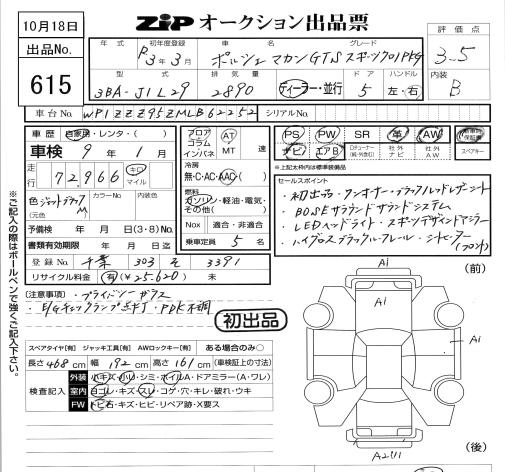 10月18日
出品No.
615
ZIP オークション出品票
年式 初年度登録 車名 グレード
R3年3月 ポルシェ マカンGTS スポーツクロノPKG
型式 排気量 ドア ハンドル
3BA-J1L29 2890 ディーラー・並行 5 左・右
評価点
3-5
内装
B
車台No. WP1ZZZ95ZMLB62252 シリアルNo.
車歴 自家用・レンタ・( )
車検 9年1月
走行 72,966 キロ マイル
色 ジェットブラックM カラーNo. 内装色
(元色 )
予備検 年 月 日(3・8)No.
書類有効期限 年 月 日迄
登録No. 千葉 303 そ 3391
リサイクル料金 有(¥25.620) 未
フロア コラム インパネ AT MT 速
冷房
無・C・AC・AAC
燃料
ガソリン・軽油・電気・その他( )
Nox 適合・非適合
乗車定員 5 名
PS PW SR 革 AW 新車時保証書
ナビ エアB Dチューナー 社外ナビ 社外AW スペアキー
※上記太枠内は標準装備品
セールスポイント
・初出品・ワンオーナー
・BOSEサラウンドサウンドシステム
・LEDヘッドライト・スポーツデザインドアミラー
・ハイグロスブラックルーフレール・シートヒーター(フロント)
[注意事項]
・プライバシーガラス
・E/Gチェックランプ点灯 ・PDK不調
初出品
スペアタイヤ[有] ジャッキ工具[有] AWロックキー[有] ある場合のみ○
長さ468cm 幅192cm 高さ161cm (車検証上の寸法)
検査記入
外装 小キズ・小U・シミ・ホイルA・ドアミラー(A・ワレ)
室内 ヨゴレ・キズ・スレ・コゲ・穴・キレ・破れ・ウキ
FW トビ石・キズ・ヒビ・リペア跡・X要ス
(前)
Ai
Ai
Ai
A2U1
(後)
※ご記入の際はボールペンで強くご記入下さい。